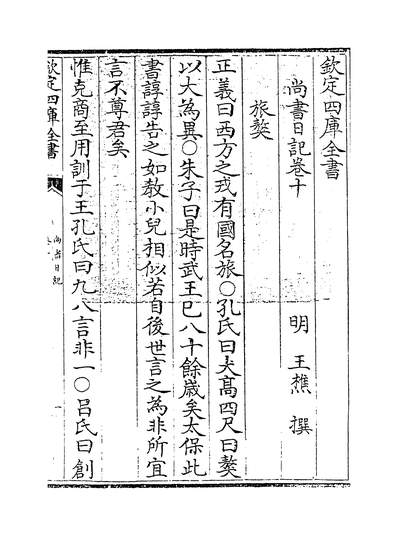 欽定四庫全書
尚書日記卷十
明 王樵 撰
旅獒
正義曰西方之戎有國名旅○孔氏曰犬高四尺曰獒
以大為異○朱子曰是時武王已八十餘歲矣太保此
書諄諄告之如教小兒相似若自後世言之為非所宜
言不尊君矣
惟克商至用訓于王孔氏曰九八言非一○呂氏曰創
欽定四庫全書
尚書日記
一